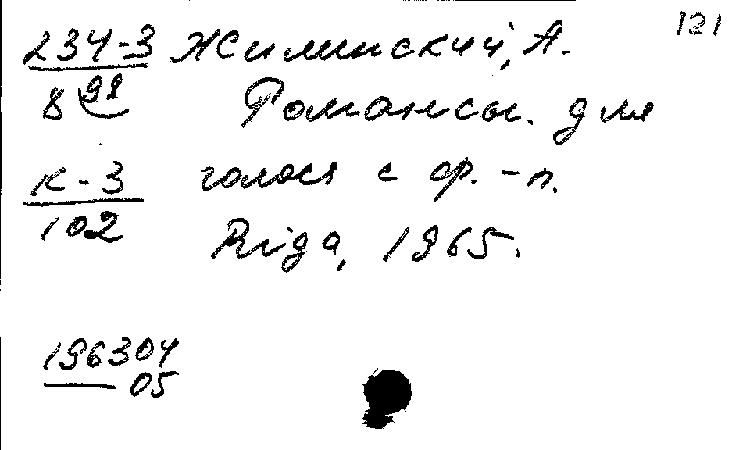 121
234-3 Жилинский, А.
8 98 Романсы. для
к-3 голоса с ф.-п.
102 Riga, 1965.
196304
05